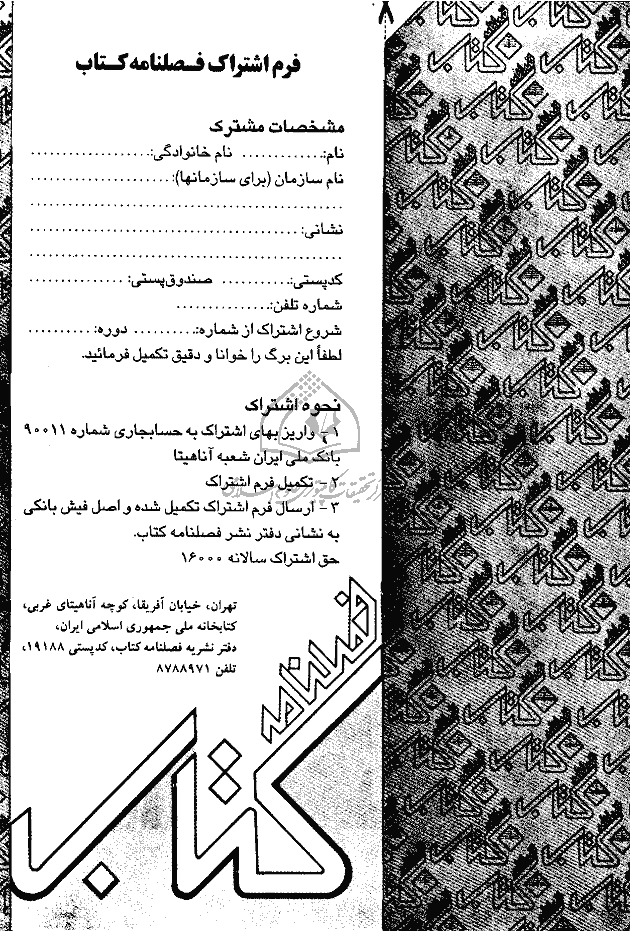 فرم اشتراک فصلنامه کتاب
مشخصات مشترک
نام:............ نام خانوادگی:..................
نام سازمان (برای سازمانها):.....................
................................................
نشانی: .........................................
................................................
کدپستی:.......... صندوق‌پستی: ..............
شماره تلفن:..............
شروع اشتراک از شماره:......... دوره:..........
لطفاً این برگ را خوانا و دقیق تکمیل فرمائید.
نحوه اشتراک
۱- واریز بهای اشتراک به حسابجاری شماره ۹۰۰۱۱
بانک ملی ایران شعبه آناهیتا
۲- تکمیل فرم اشتراک
۳- ارسال فرم اشتراک تکمیل شده و اصل فیش بانکی
به نشانی دفتر نشر فصلنامه کتاب.
حق اشتراک سالانه ۱۶۰۰۰
تهران، خیابان آفریقا، کوچه آناهیتای غربی،
کتابخانه ملی جمهوری اسلامی ایران،
دفتر نشریه فصلنامه کتاب، کدپستی ۱۹۱۸۸،
تلفن ۸۷۸۸۹۷۱
فصلنامه
کتاب